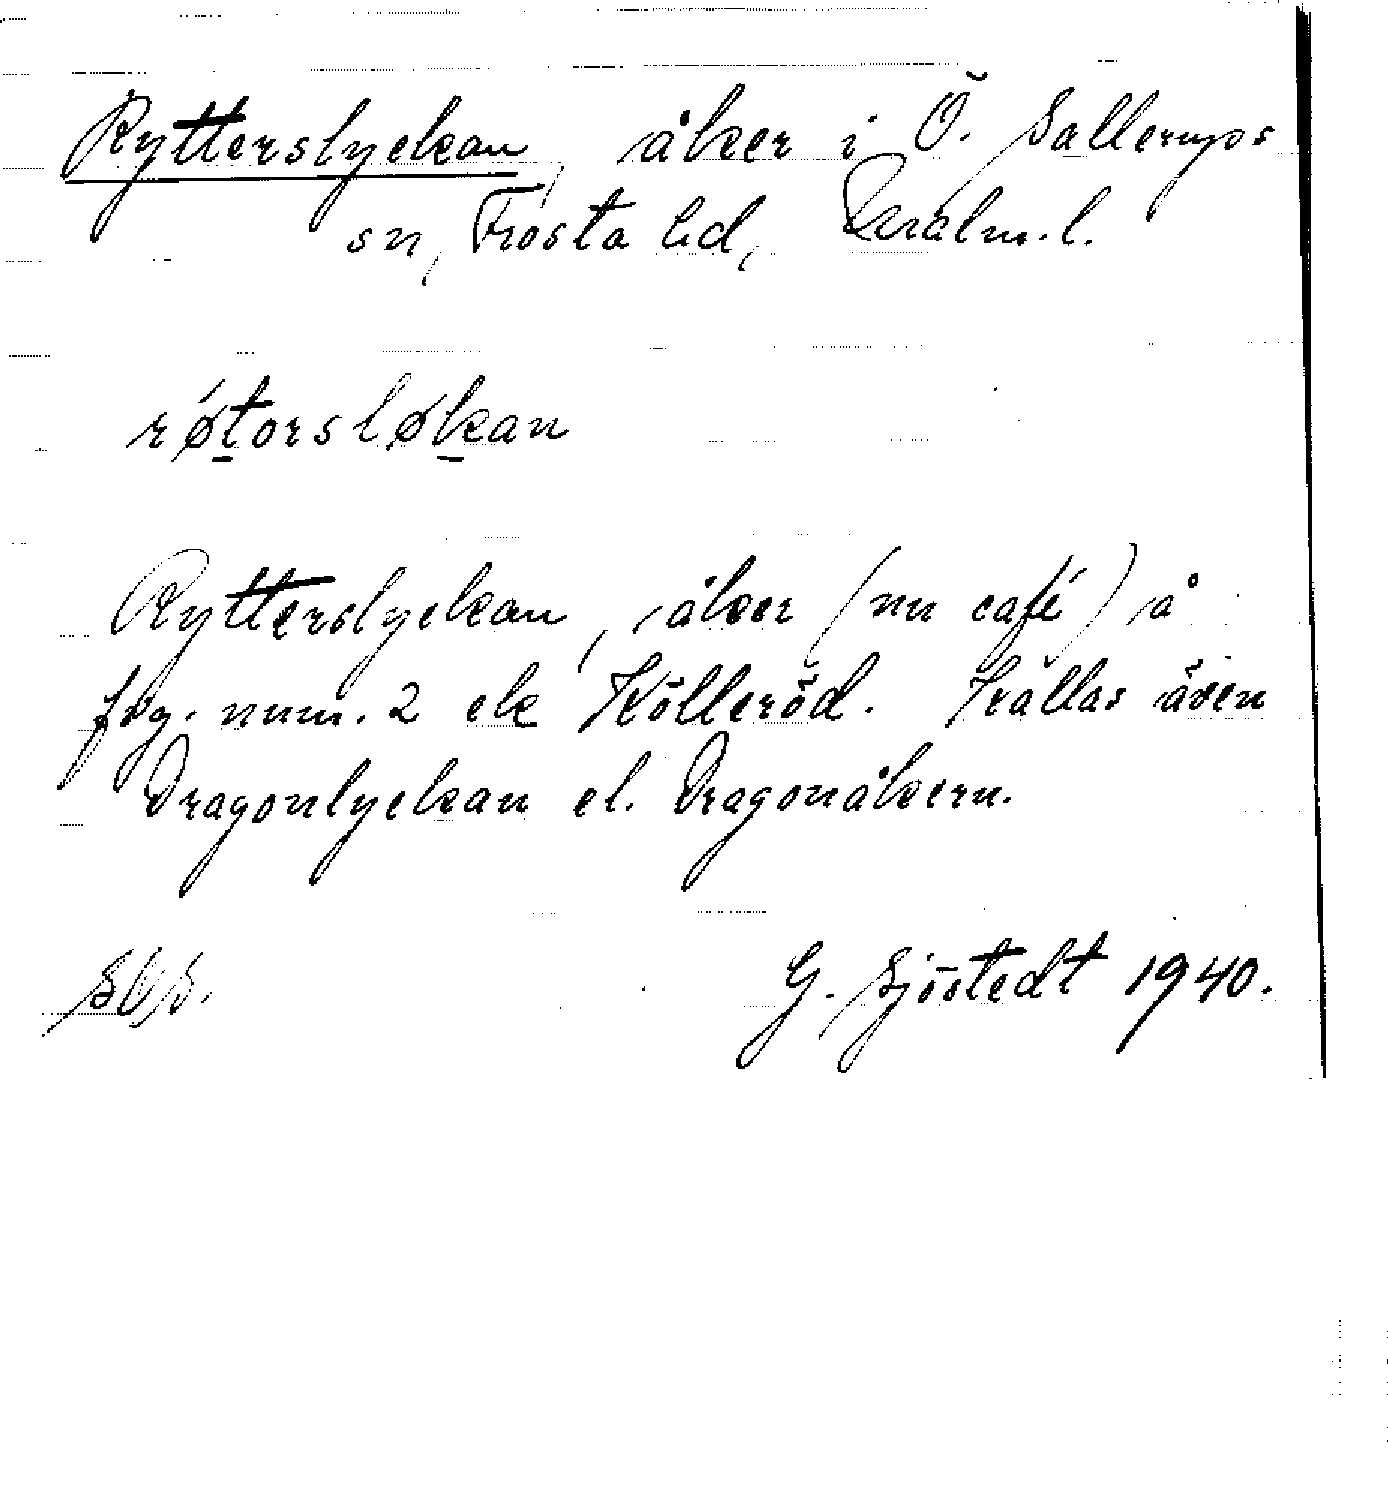 Rytterslyckan, åker i Ö. Sallerups
sn, Frosta hd, Malm. l.
røtorsløkan
Rytterslyckan, åker (nu café) å
frg. num. 2 ek Kölleröd. Kallas även
Dragonlyckan el. Dragonåkern.
G. Sjöstedt 1940.